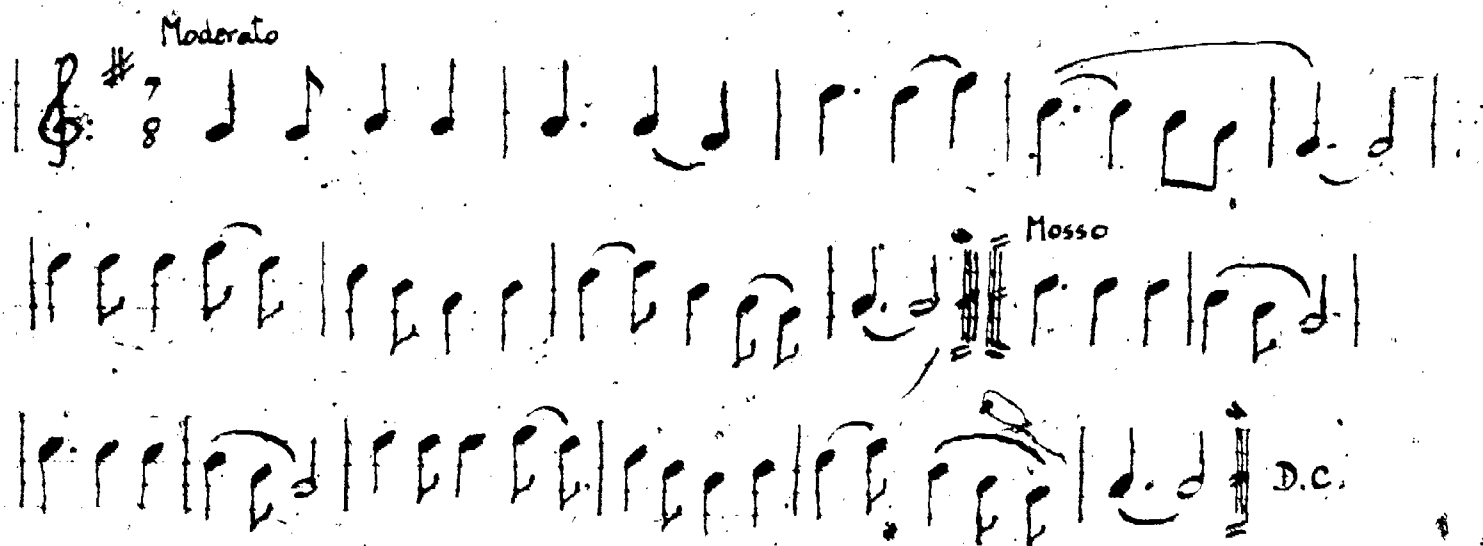 Moderato
7
8
Mosso
D.C.